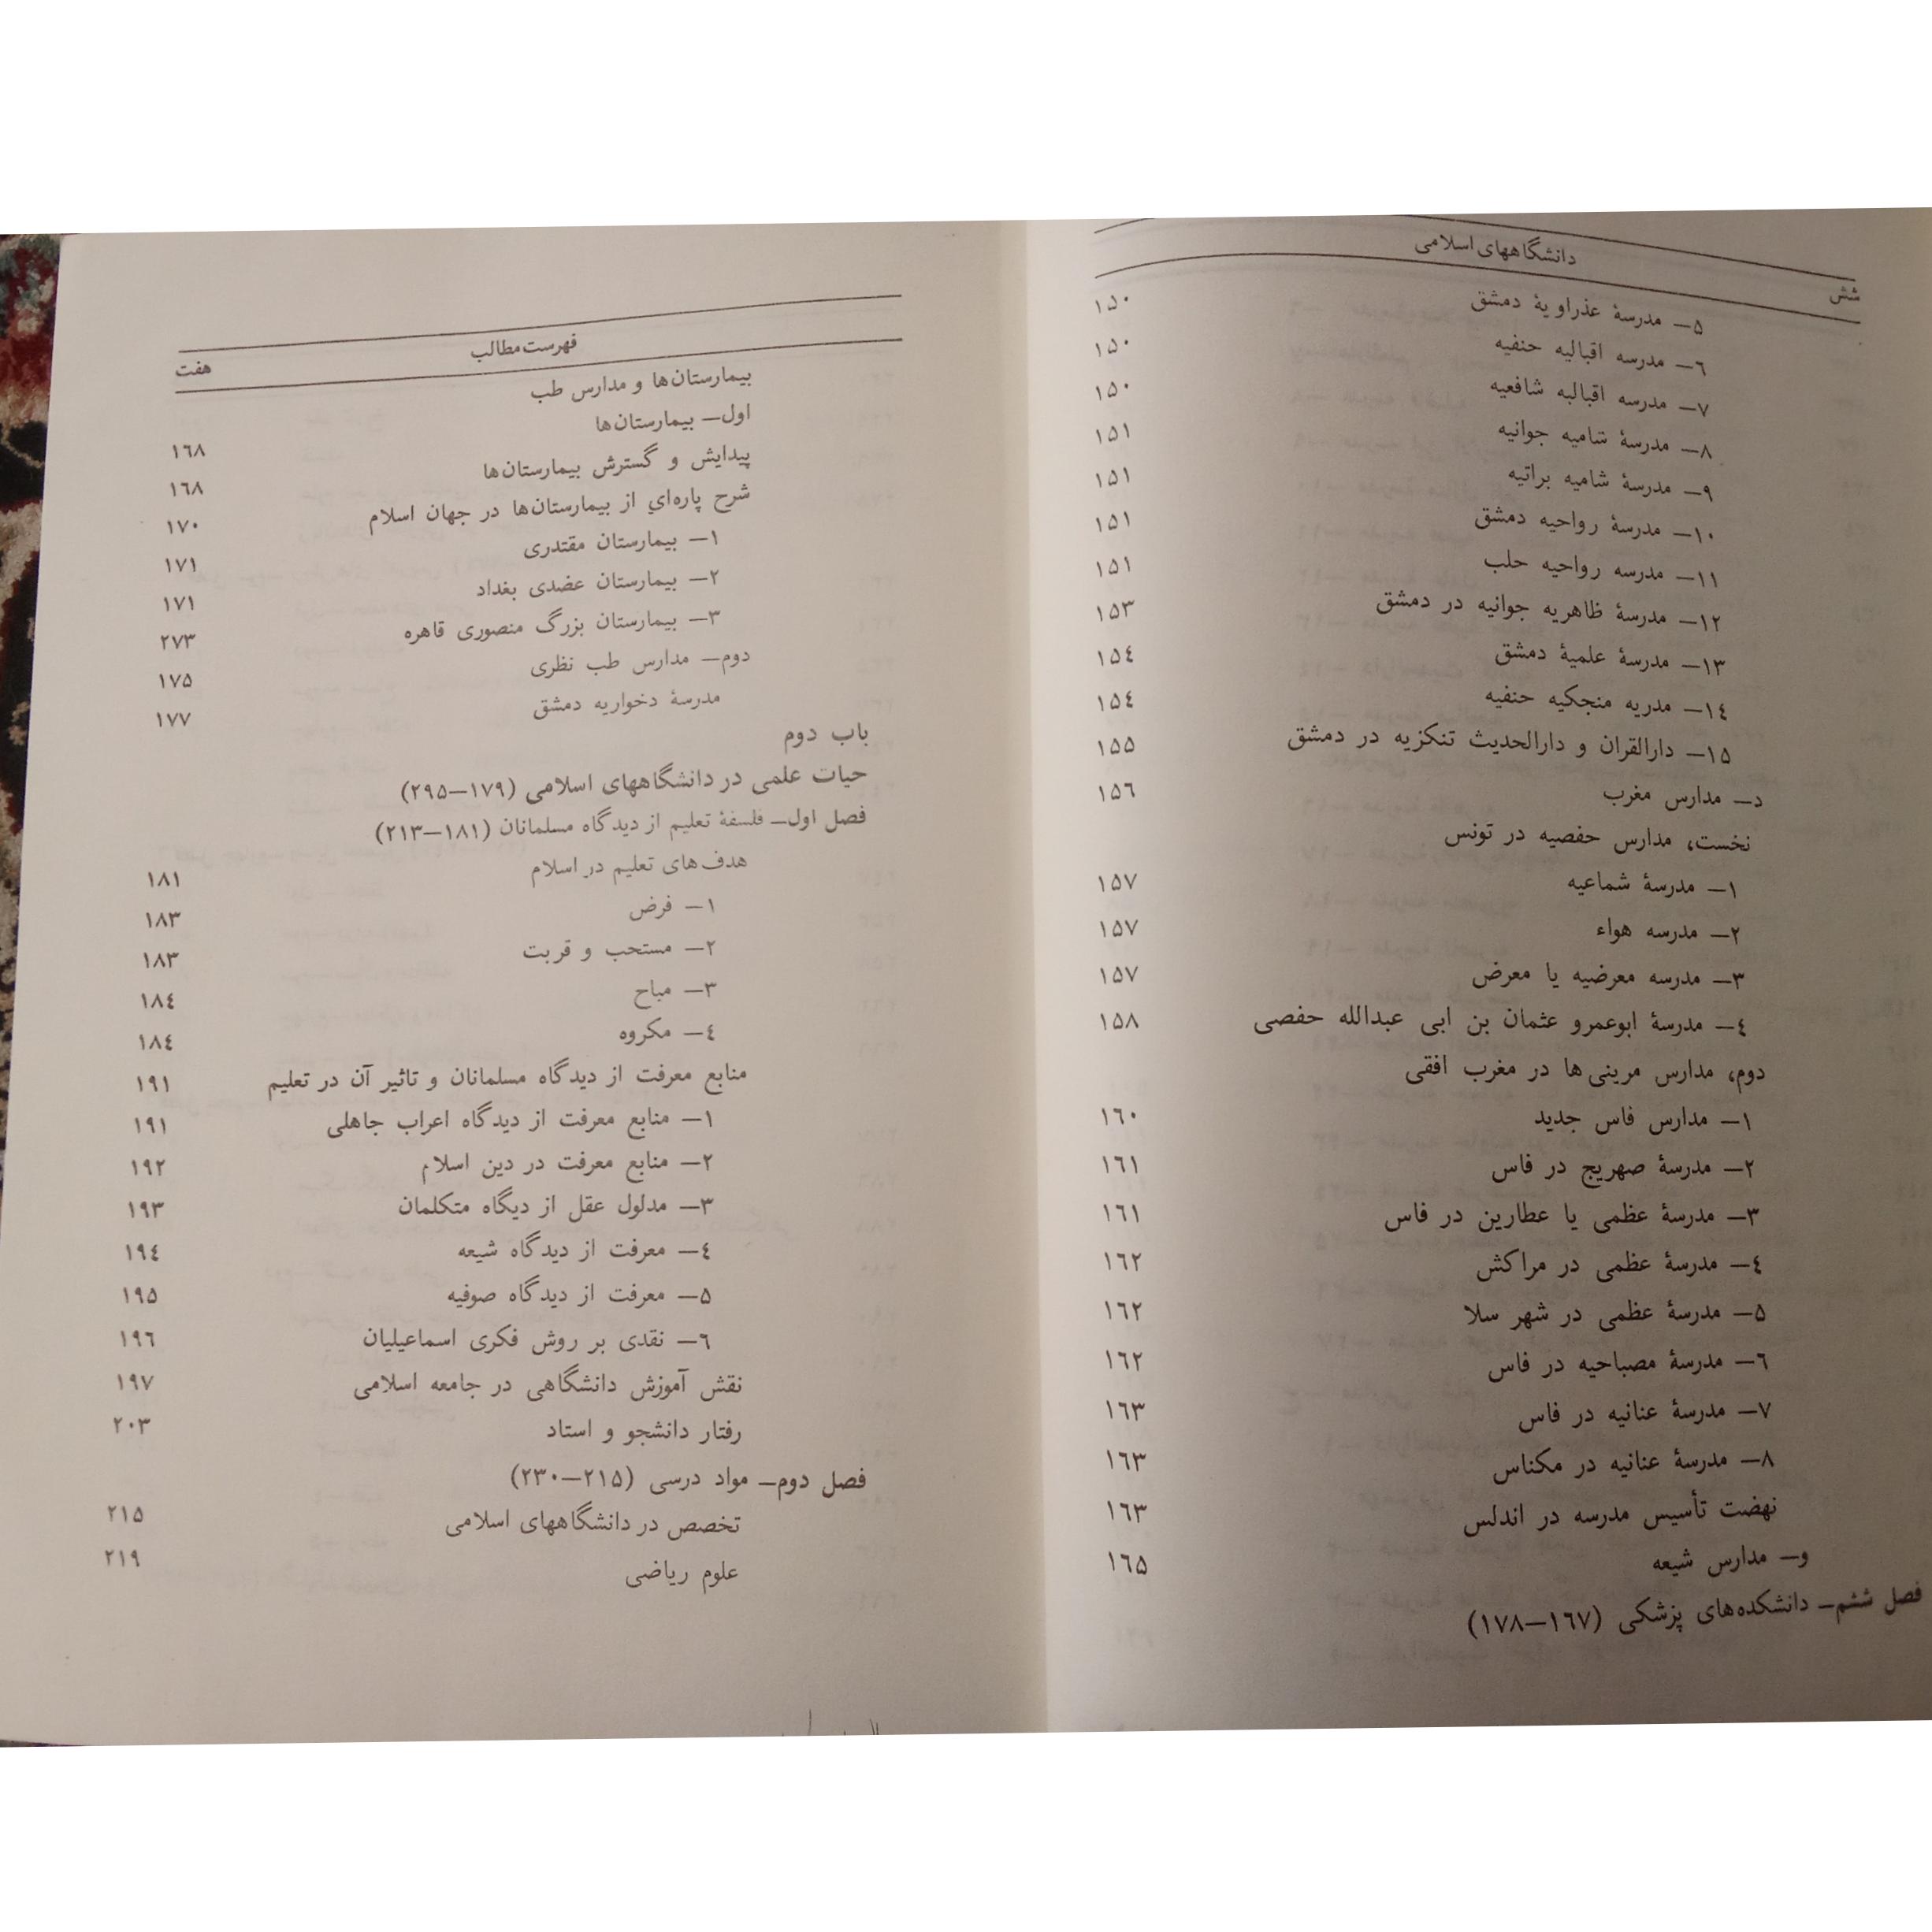 شش
دانشگاههای اسلامی
۵ــ مدرسهٔ عذراویهٔ دمشق ۱۵۰
٦ــ مدرسه اقبالیه حنفیه ۱۵۰
۷ــ مدرسه اقبالیه شافعیه ۱۵۰
۸ــ مدرسهٔ شامیه جوانیه ۱۵۱
۹ــ مدرسهٔ شامیه براتیه ۱۵۱
۱۰ــ مدرسهٔ رواحیه دمشق ۱۵۱
۱۱ــ مدرسه رواحیه حلب ۱۵۱
۱۲ــ مدرسهٔ ظاهریه جوانیه در دمشق ۱۵۳
۱۳ــ مدرسهٔ علمیهٔ دمشق ۱۵٤
۱٤ــ مدریه منجکیه حنفیه ۱۵٤
۱۵ــ دارالقران و دارالحدیث تنکزیه در دمشق ۱۵۵
د ــ مدارس مغرب ۱۵٦
نخست، مدارس حفصیه در تونس
۱ــ مدرسهٔ شماعیه ۱۵۷
۲ــ مدرسه هواء ۱۵۷
۳ــ مدرسه معرضیه یا معرض ۱۵۷
٤ــ مدرسهٔ ابوعمرو عثمان بن ابی عبدالله حفصی ۱۵۸
دوم، مدارس مرینی‌ها در مغرب افقی
۱ــ مدارس فاس جدید ۱٦۰
۲ــ مدرسهٔ صهریج در فاس ۱٦۱
۳ــ مدرسهٔ عظمی یا عطارین در فاس ۱٦۱
٤ــ مدرسهٔ عظمی در مراکش ۱٦۲
۵ــ مدرسهٔ عظمی در شهر سلا ۱٦۲
٦ــ مدرسهٔ مصباحیه در فاس ۱٦۲
۷ــ مدرسهٔ عنانیه در فاس ۱٦۳
۸ــ مدرسهٔ عنانیه در مکناس ۱٦۳
نهضت تأسیس مدرسه در اندلس ۱٦۳
و ــ مدارس شیعه ۱٦۵
فصل ششم ــ دانشکده‌های پزشکی (۱٦۷ــ۱۷۸)
فهرست مطالب
هفت
بیمارستان‌ها و مدارس طب
اول ــ بیمارستان‌ها ۱٦۸
پیدایش و گسترش بیمارستان‌ها ۱٦۸
شرح پاره‌ای از بیمارستان‌ها در جهان اسلام ۱۷۰
۱ــ بیمارستان مقتدری ۱۷۱
۲ــ بیمارستان عضدی بغداد ۱۷۱
۳ــ بیمارستان بزرگ منصوری قاهره ۲۷۳
دوم ــ مدارس طب نظری ۱۷۵
مدرسهٔ دخواریه دمشق ۱۷۷
باب دوم
حیات علمی در دانشگاههای اسلامی (۱۷۹ــ۲۹۵)
فصل اول ــ فلسفهٔ تعلیم از دیدگاه مسلمانان (۱۸۱ــ۲۱۳)
هدف‌های تعلیم در اسلام ۱۸۱
۱ــ فرض ۱۸۳
۲ــ مستحب و قربت ۱۸۳
۳ــ مباح ۱۸٤
٤ــ مکروه ۱۸٤
منابع معرفت از دیدگاه مسلمانان و تاثیر آن در تعلیم ۱۹۱
۱ــ منابع معرفت از دیدگاه اعراب جاهلی ۱۹۱
۲ــ منابع معرفت در دین اسلام ۱۹۲
۳ــ مدلول عقل از دیگاه متکلمان ۱۹۳
٤ــ معرفت از دیدگاه شیعه ۱۹٤
۵ــ معرفت از دیدگاه صوفیه ۱۹۵
٦ــ نقدی بر روش فکری اسماعیلیان ۱۹٦
نقش آموزش دانشگاهی در جامعه اسلامی ۱۹۷
رفتار دانشجو و استاد ۲۰۳
فصل دوم ــ مواد درسی (۲۱۵ــ۲۳۰)
تخصص در دانشگاههای اسلامی ۲۱۵
علوم ریاضی ۲۱۹